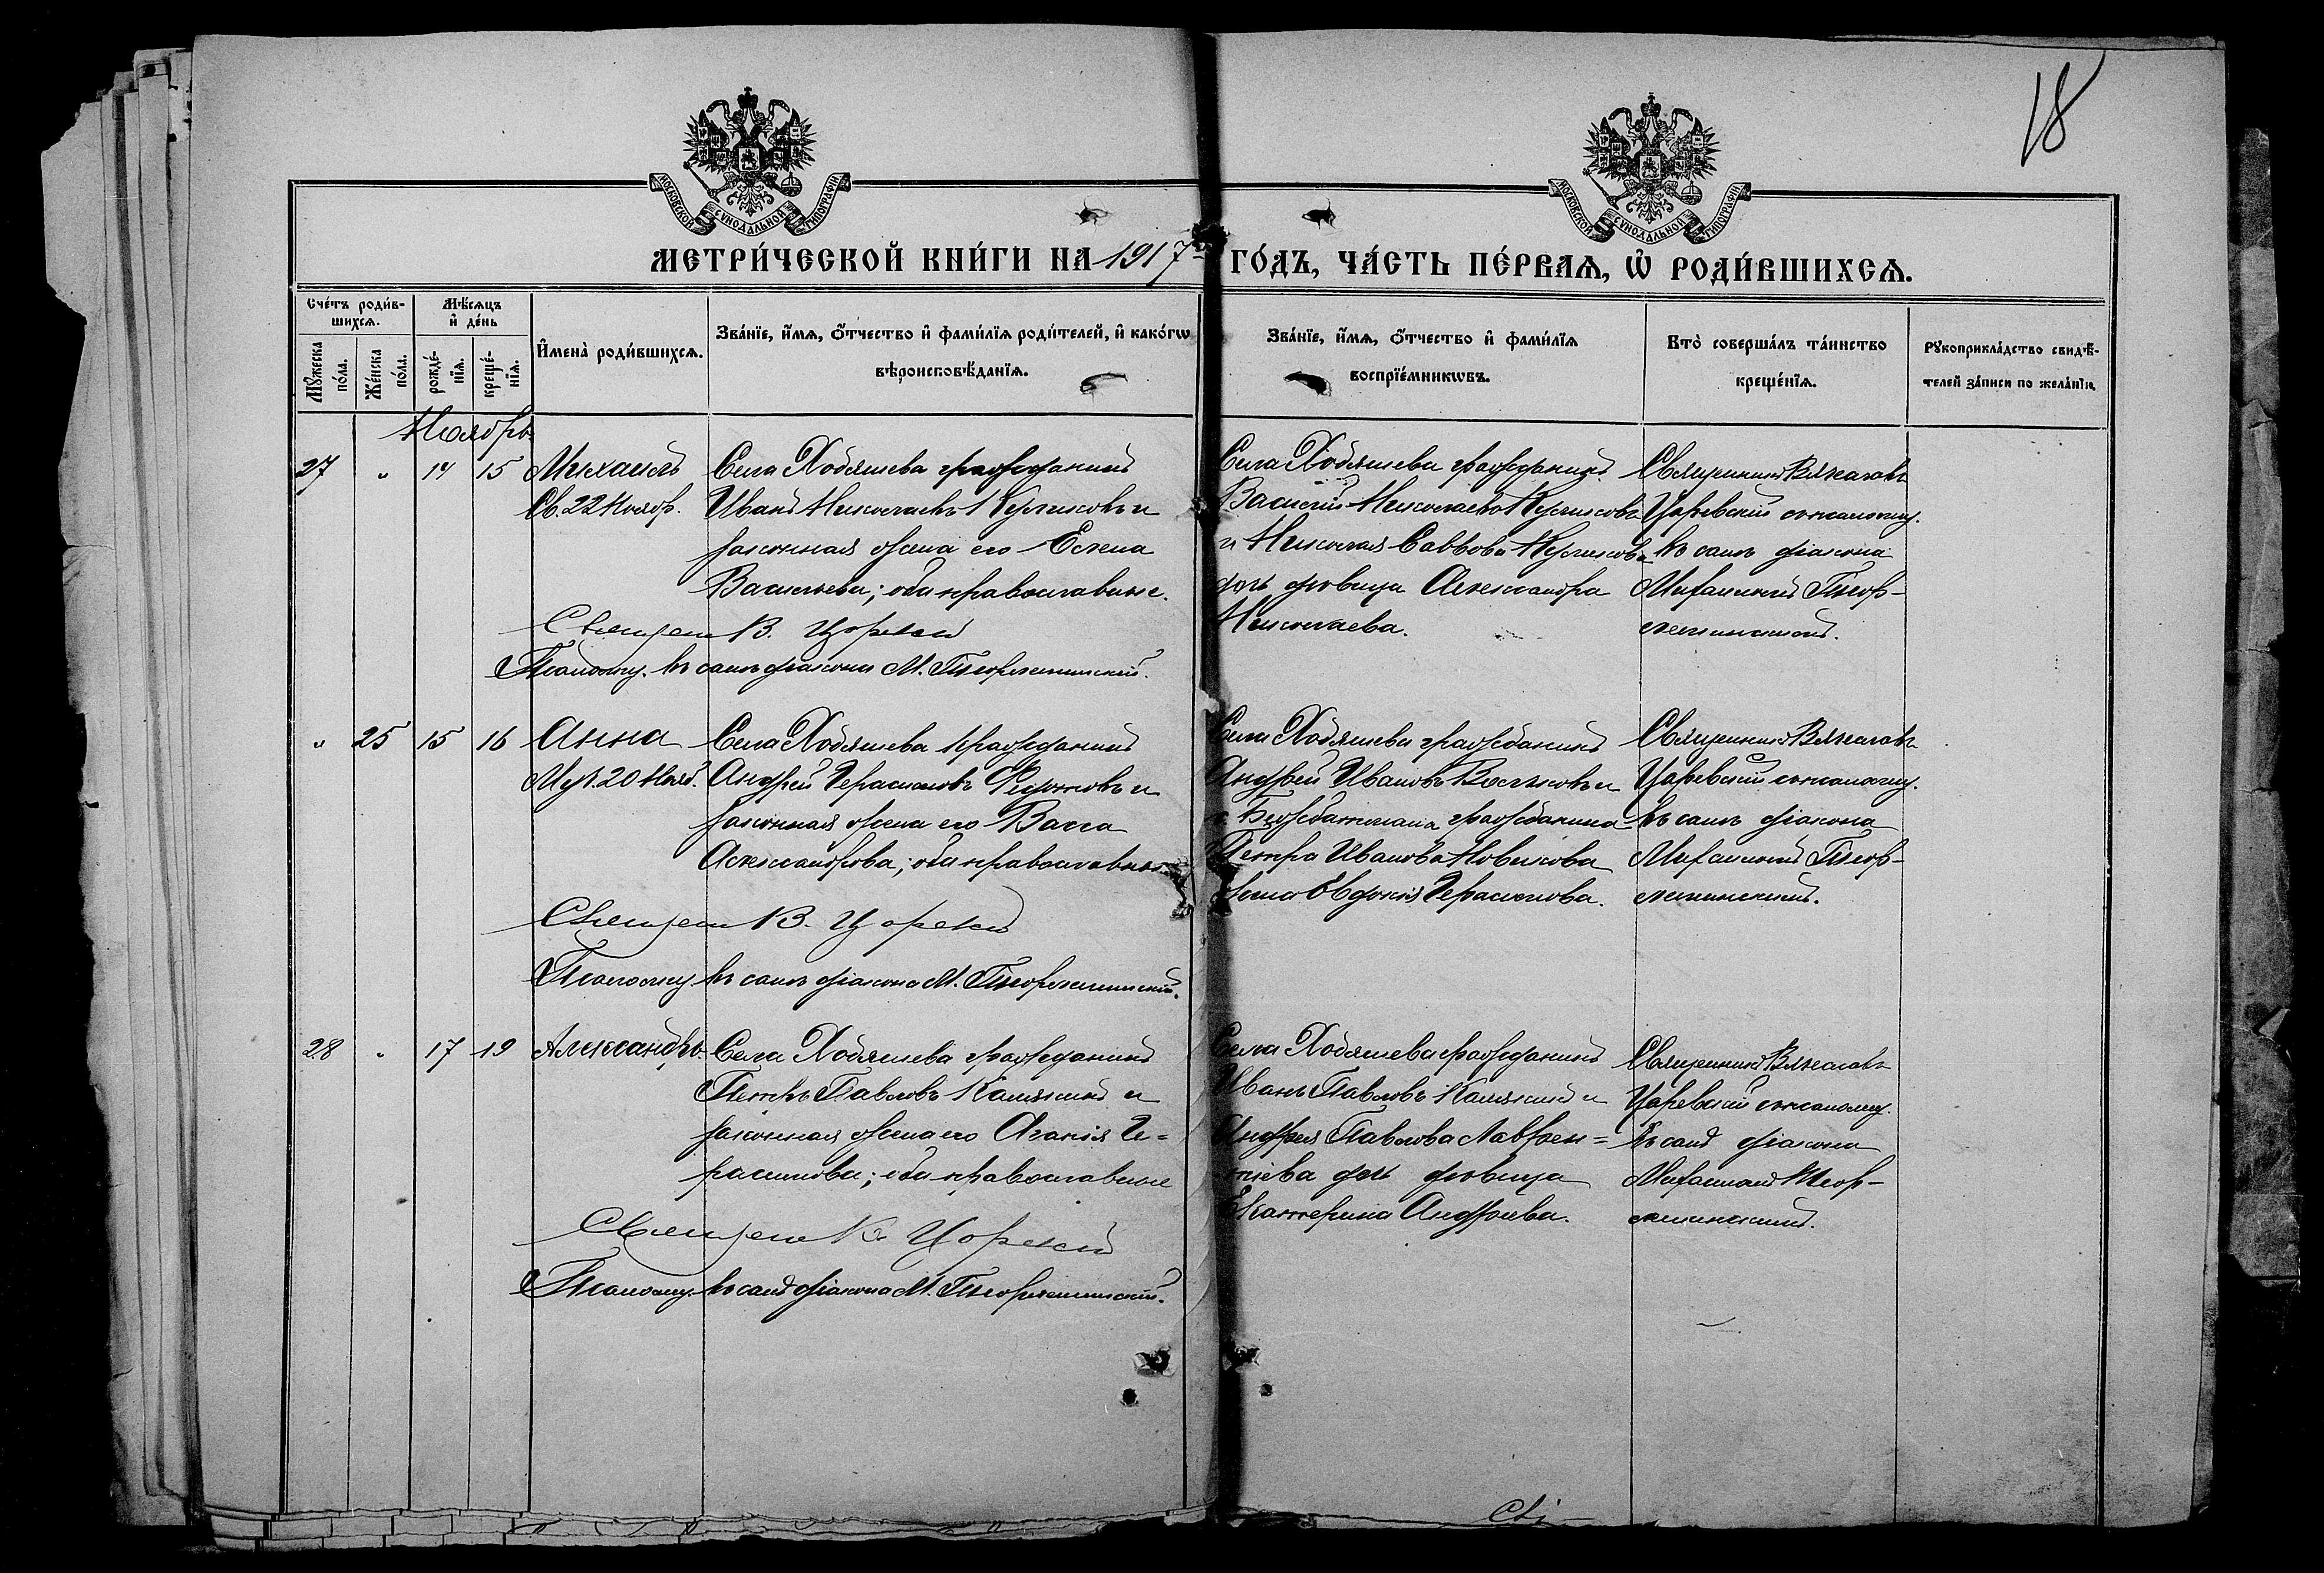 18
МОСКОВСКОЙ СѴНОДАЛЬНОЙ ТИПОГРАФІИ
МОСКОВСКОЙ СѴНОДАЛЬНОЙ ТИПОГРАФІИ
МЕТРИ́ЧЕСКОЙ КНИ́ГИ НА 1917 ГО́ДЪ, ЧА́СТЬ ПЕ́РВАѦ, Ѡ҆ РОДИ́ВШИХСѦ.
Сче́тъ роди́в-
шихсѧ.
Мѣ́сѧцъ
и҆ де́нь
Мꙋ́жеска
по́ла.
Же́нска
по́ла.
рожде́-
нїѧ.
креще́-
нїѧ.
И҆мена̀ роди́вшихсѧ.
Зва́нїе, и҆́мѧ, ѻ҆́тчество и҆ фами́лїѧ роди́телей, и҆ како́гѡ
вѣроисповѣ́данїѧ.
Зва́нїе, и҆́мѧ, ѻ҆́тчество и҆ фами́лїѧ
воспрїе́мникѡвъ.
Кто̀ соверша́лъ та́инство
креще́нїѧ.
Рꙋкоприкла́дство свидѣ́-
телей за́писи по жела́нїю.
Ноябрь
27 " 14 15 Михаилъ
Св. 22 Нояб.
Села Хобяшева гражданинъ
Иванъ Николаевъ Куликовъ и
законная жена его Елена
Васильева; оба православные.
Села Хобяшева гражданинъ
Василій Николаевъ Куликовъ
и Николая Саввова Куликова
дочь девица Александра
Николаева.
Священникъ Вячеславъ
Царевскій съ псаломщ.
въ санѣ діакона
Михаиломъ
Священ В. Царевскій
Псаломщ. въ санѣ діакона М.
" 25 15 16 Анна
Муч. 20 Нояб.
Села Хобяшева гражданинъ
Андрей Герасимовъ и
законная жена его Васса
Александрова; оба православные
Села Хобяшева гражданинъ
Андрей Ивановъ Волковъ и
гражданина
Петра Иванова Новикова
жена Евдокія Герасимова.
Священникъ Вячеславъ
Царевскій съ псаломщ.
въ санѣ діакона
Михаиломъ
Священ В. Царевскій
Псаломщ. въ санѣ діакона М.
28 " 17 19 Александръ
Села Хобяшева гражданинъ
Петръ Павловъ и
законная жена его Агапія Ге=
расимова; оба православные
Села Хобяшева гражданинъ
Иванъ Павловъ и
Андрея Павлова Лаврен=
тіева дочь девица
Екатерина Андреева.
Священникъ Вячеславъ
Царевскій съ псаломщ.
въ санѣ діакона
Михаиломъ
Священ В. Царевскій
Псаломщ. въ санѣ діакона М.